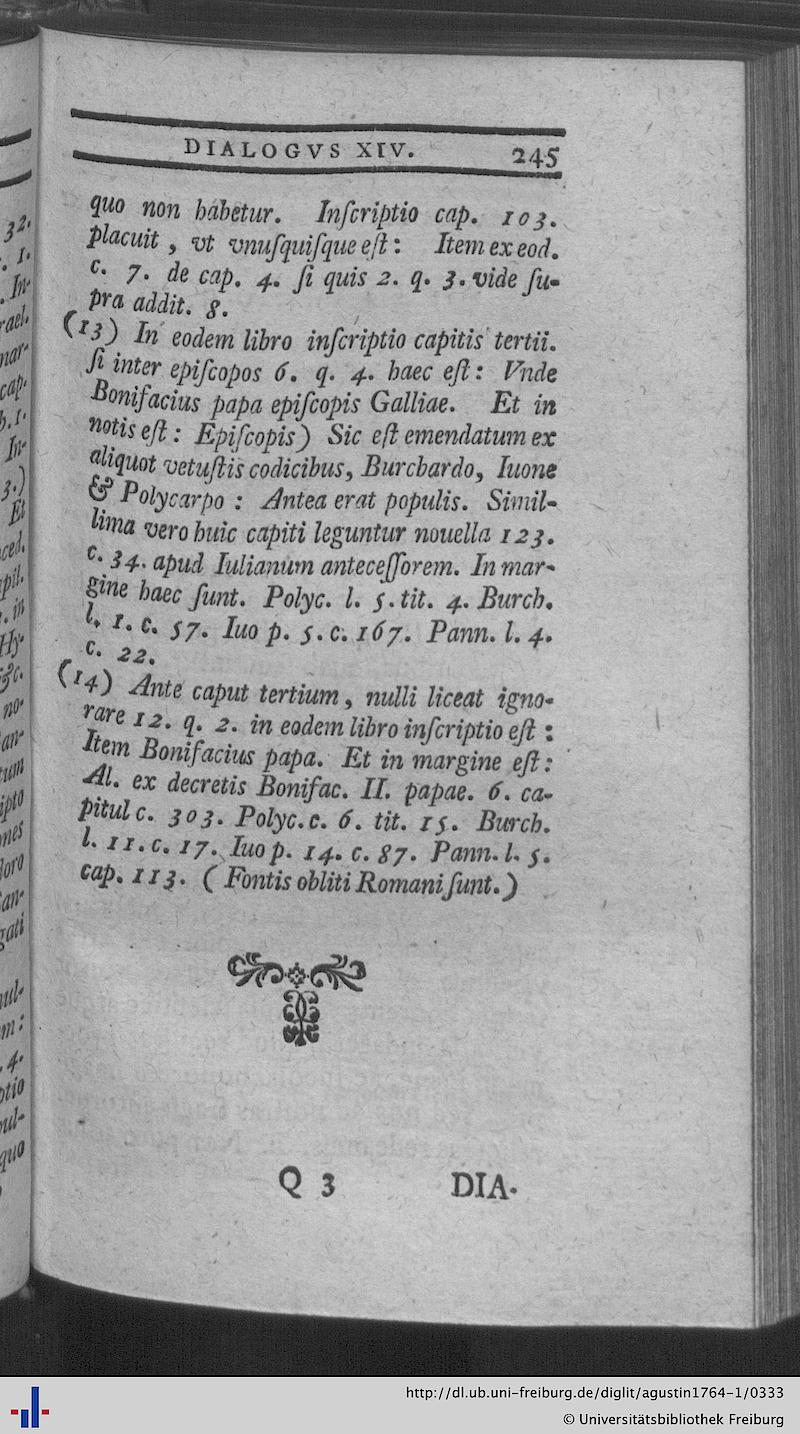 DIALOGVS XIV. 245
quo non habetur. Inſcriptio cap. 103.
placuit, vt vnuſquiſque eſt: Item ex eod.
c. 7. de cap. 4. ſi quis 2. q. 3. vide ſu-
pra addit. 8.
(13) In eodem libro inſcriptio capitis tertii.
ſi inter epiſcopos 6. q. 4. haec eſt: Vnde
Bonifacius papa epiſcopis Galliae. Et in
notis eſt: Epiſcopis) Sic eſt emendatum ex
aliquot vetuſtis codicibus, Burchardo, Iuone
& Polycarpo: Antea erat populis. Simil-
lima vero huic capiti leguntur nouella 123.
c. 34. apud Iulianum anteceſſorem. In mar-
gine haec ſunt. Polyc. l. 5. tit. 4. Burch.
l. 1. c. 57. Iuo p. 5. c. 167. Pann. l. 4.
c. 22.
(14) Ante caput tertium, nulli liceat igno-
rare 12. q. 2. in eodem libro inſcriptio eſt:
Item Bonifacius papa. Et in margine eſt:
Al. ex decretis Bonifac. II. papae. 6. ca-
pitul c. 303. Polyc. c. 6. tit. 15. Burch.
l. 11. c. 17. Iuo p. 14. c. 87. Pann. l. 5.
cap. 113. (Fontis obliti Romani ſunt.)
Q 3 DIA-
32.
. 1.
In-
rael.
nar-
cap.
b. 1.
In-
3.)
Et
ced.
pil.
. in
Hy-
&c.
no-
an-
tum
ipto
nes
loro
an-
gati
nul-
m:
. 4.
ptio
pul-
quo
http://dl.ub.uni-freiburg.de/diglit/agustin1764-1/0333
© Universitätsbibliothek Freiburg